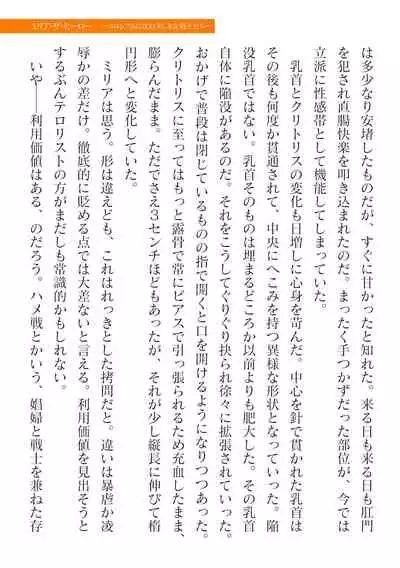 は多少なり安堵したものだが、すぐに甘かったと知れた。来る日も来る日も肛門
を犯され直腸快楽を叩き込まれたのだ。まったく手つかずだった部位が、今では
立派に性感帯として機能してしまっていた。
乳首とクリトリスの変化も日増しに心身を苛んだ。中心を針で貫かれた乳首は
その後も何度か貫通されて、中央にへこみを持つ異様な形状となっていった。陥
没乳首ではない。乳首そのものは埋まるどころか以前よりも肥大した。その乳首
自体に陥没があるのだ。それをこうしてぐりぐり抉られ徐々に拡張されていった。
おかげで普段は閉じているものの指で開くと口を開けるようになりつつあった。
クリトリスに至ってはもっと露骨で常にピアスで引っ張られるため充血したまま、
膨らんだまま。ただでさえ３センチほどもあったが、それが少し縦長に伸びて楕
円形へと変化していた。
ミリアは思う。形は違えども、これはれっきとした拷問だと。違いは暴虐か凌
辱かの差だけ。徹底的に貶める点では大差ないと言える。利用価値を見出そうと
するぶんテロリストの方がまだしも常識的かもしれない。
いや――利用価値はある、のだろう。ハメ戦とかいう、娼婦と戦士を兼ねた存